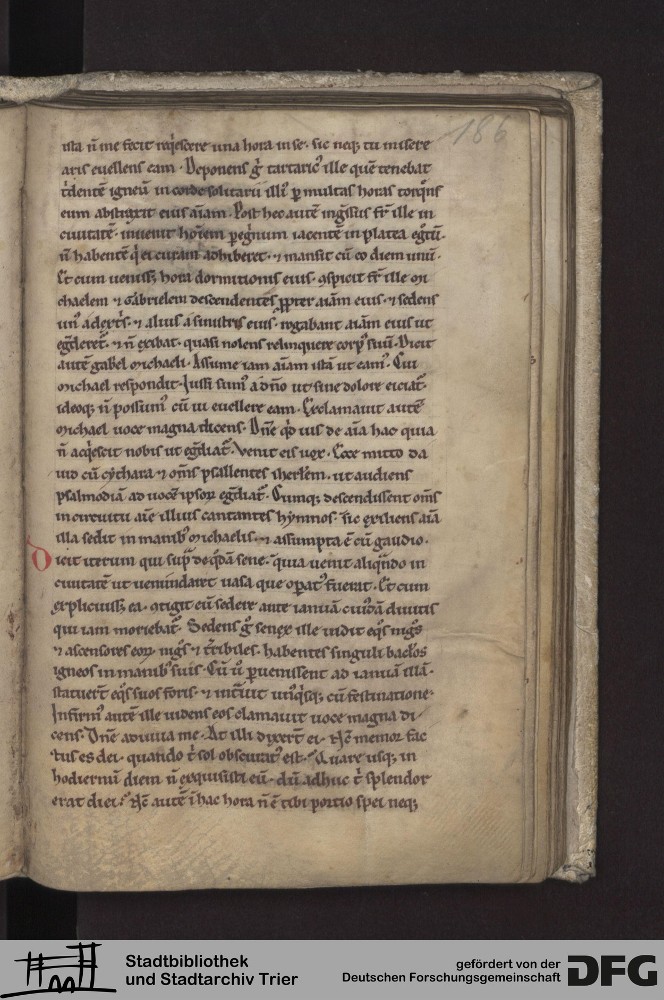 186
ista n̄ me fecit reqͥescere una hora in se· sic neq; tu misere
aris euellens eam· Deponens g̃ tartaricꝰ ille quē tenebat
t̃dentē igneū in corde solitarii illiꝰ ꝑ multas horas torqͣns
eum abstraxit eius aīam· Post hec autē ingr̄ssus fr̄ ille in
ciuitatē· inuenit hoīem ꝑegͥnum iacentē in platea egͦtū·
n̄ habentē qͥ ei curam adhiberet· ⁊ mansit cū eo diem unū·
Et cum uenisset hora dormitionis eius· ꝯspicit fr̄ ille mi
chaelem ⁊ Gabrielem descendentes ꝓpter aīam eius· ⁊ sedens
unꝰ a dext̃s· ⁊ alius a sinistris eius· rogabant aīam eius ut
egͤderet̃· ⁊ n̄ exibat· quasi nolens relinquere corpꝰ suū· Dicit
autē gabͥel michaeli· Assume iam aīam istā ut eamꝰ· Cui
michael respondit· Iussi sumꝰ a dn̄o ut sine dolore eiciat̃·
ideoq; n̄ possumꝰ cū ui euellere eam· Exclamauit autē
michael uoce magna dicens· Dn̄e qͥd uis de aīa hac quia
n̄ acqͥescit nobis ut egͤdiat̃· Venit eis uox· Ecce mitto da
uid cū cythara ⁊ om̄s psallentes iherl̄em· ut audiens
psalmodiā ad uocē ipsoꝝ egͤdiat̃· Cumq; descendissent om̄s
in circuitu aīe illius cantantes hymnos· sic exiliens aīa
illa sedit in manibꝰ michaelis· ⁊ assumpta ē cū gaudio·
Dicit iterum qui supͣ de qͦdā sene· quia uenit aliqͣndo in
ciuitatē ut uenundaret uasa que opatꝰ fuerat· Et cum
explicuiss; ea· ꝯtigit eū sedere ante ianuā cuiꝰdā diuitis
qui iam moriebat̃· Sedens g̃ senex ille uidit eqͦs nigͦs
⁊ ascensores eoꝝ nigͦs ⁊ t̃ribiles· habentes singuli baclos
igneos in manibꝰ suis· Cū ū ꝑuenissent ad ianuā illā·
statuert̄ eqͦs suos foris· ⁊ int̃uit unꝰqͥsq; cū festinatione·
Infirmꝰ autē ille uidens eos clamauit uoce magna di
cens· Dn̄e adiuua me· At illi dixert̄ ei· Nc̄ memor fac
tus es dei· quando t̃ sol obscuratꝰ est· Quare usq; in
hodiernū diem n̄ exquisisti eū· dū adhuc t̃ splendor
erat diei? Nc̄ autē ī hac hora n̄ ē tibi portio spei neq;
Stadtbibliothek
und Stadtarchiv Trier
gefördert von der
Deutschen Forschungsgemeinschaft
DFG